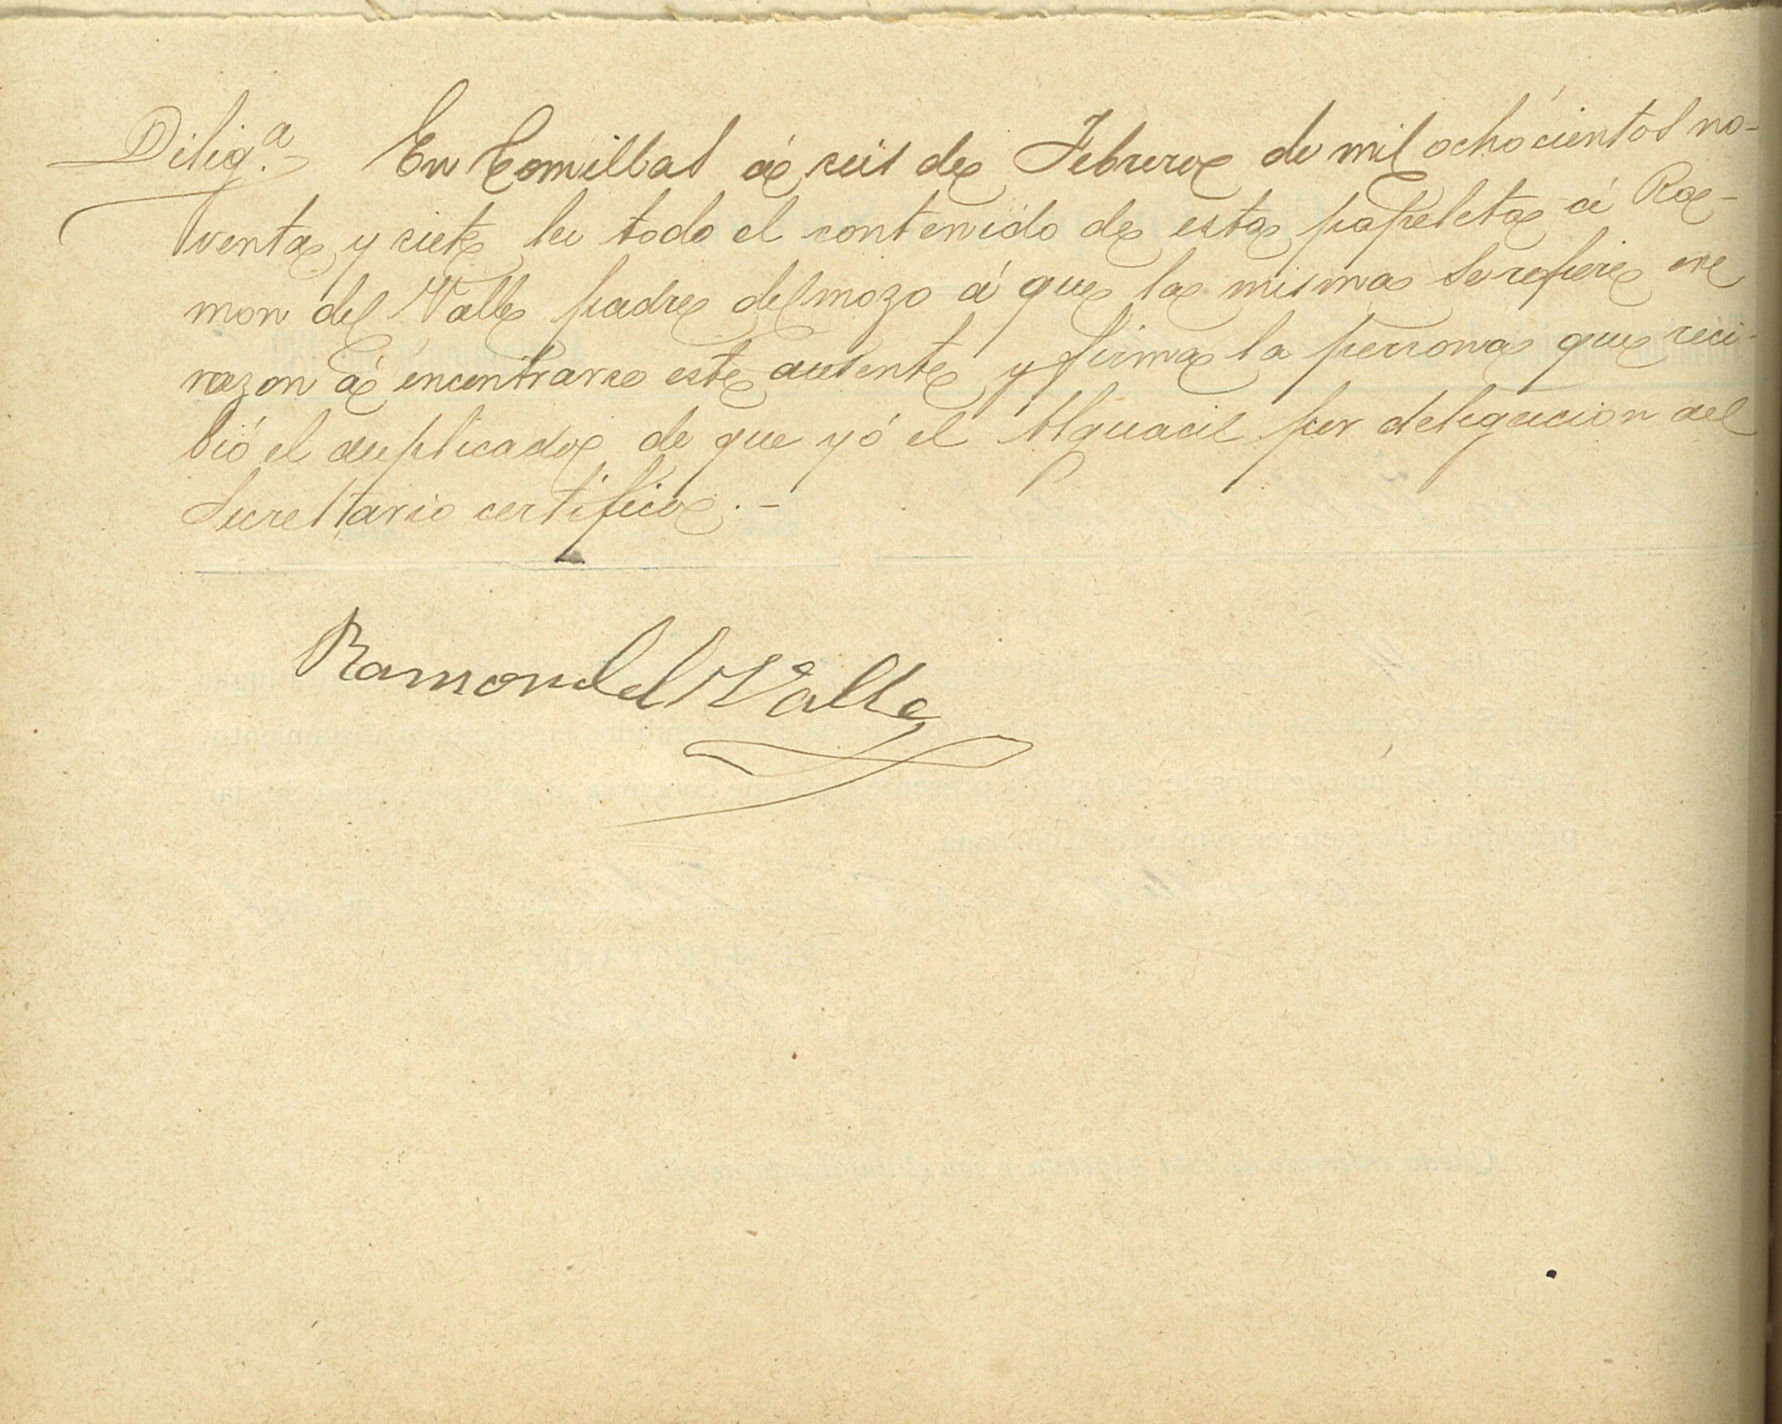 Dilig.ª En Comillas á seis de Febrero de mil ochocientos no-
venta y siete lei todo el contenido de esta papeleta á Ra-
mon del Valle padre del mozo á que la misma se refiere en
razon á encontrarse este ausente y firma la persona que reci-
bió el duplicado de que yó el Alguacil por delegacion del
Secretario certifico.-
Ramon del Valle